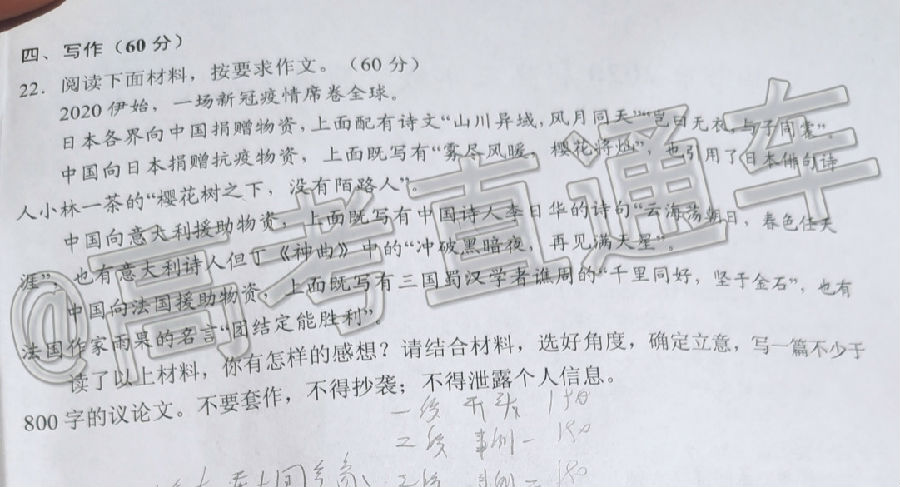 四、写作（60分）
22. 阅读下面材料，按要求作文。（60分）
2020伊始，一场新冠疫情席卷全球。
日本各界向中国捐赠物资，上面配有诗文“山川异域，风月同天”“岂曰无衣，与子同裳”。
中国向日本捐赠抗疫物资，上面既写有“雾尽风暖，樱花将灿”，也引用了日本俳句诗
人小林一茶的“樱花树之下，没有陌路人”。
中国向意大利援助物资，上面既写有中国诗人李日华的诗句“云海荡朝日，春色任天
涯”，也有意大利诗人但丁《神曲》中的“冲破黑暗夜，再见满天星”。
中国向法国援助物资，上面既写有三国蜀汉学者谯周的“千里同好，坚于金石”，也有
法国作家雨果的名言“团结定能胜利”。
读了以上材料，你有怎样的感想？请结合材料，选好角度，确定立意，写一篇不少于
800字的议论文。不要套作，不得抄袭；不得泄露个人信息。
一段 开头 150
二段 事例一 150
@高考直通车